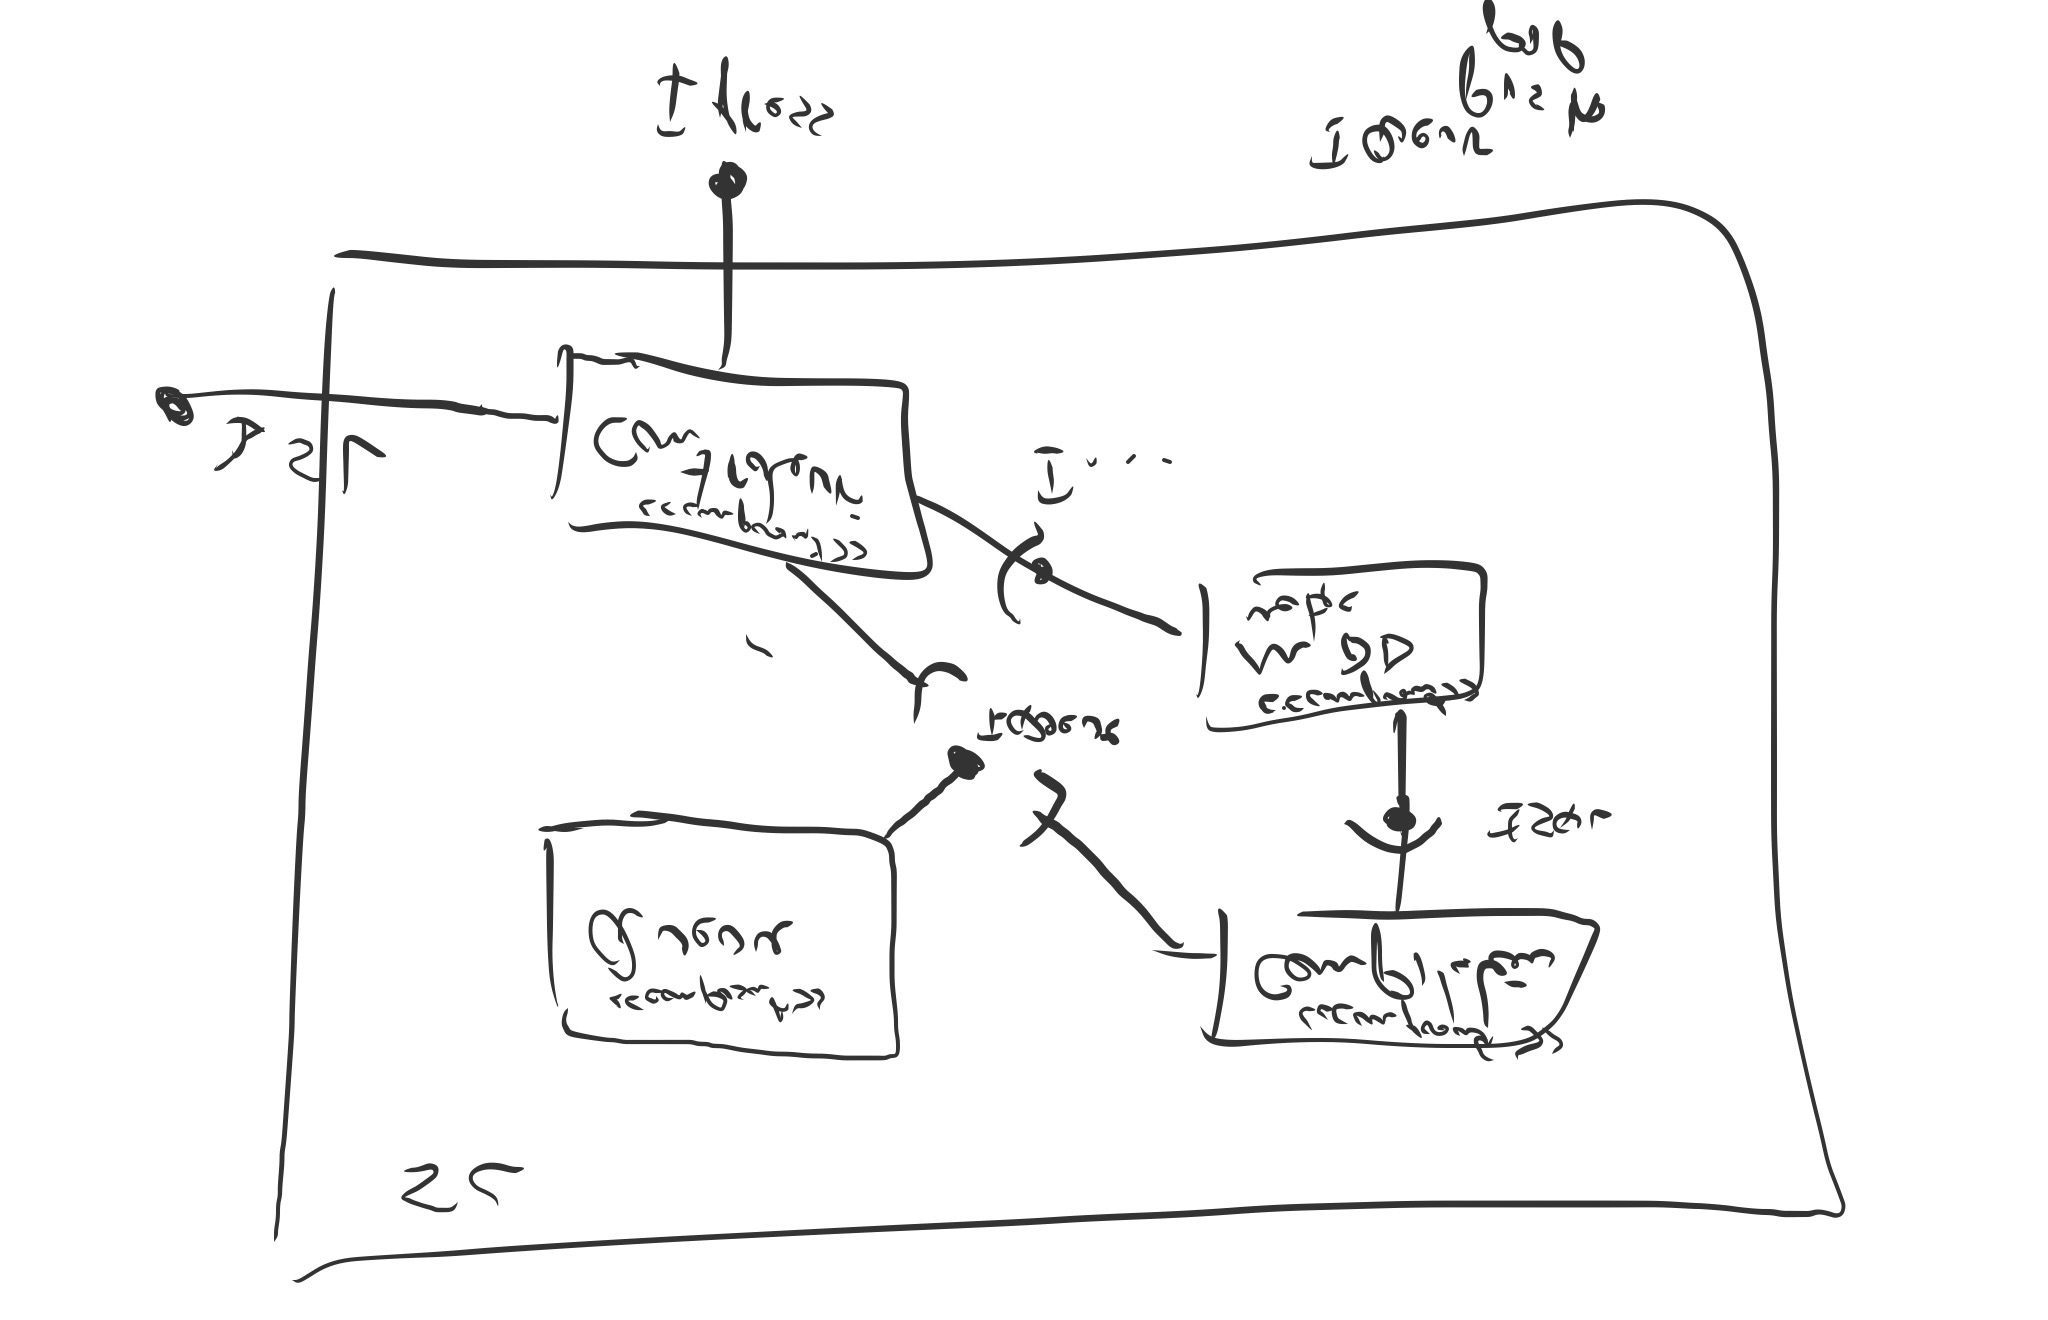 SC
<<composant>>
Queue
<<composant>>
Compilation
ISQL
IQueue
<<composant>>
votes
<<composant>>
Controleur
I....
I press
IQueue
push
pop